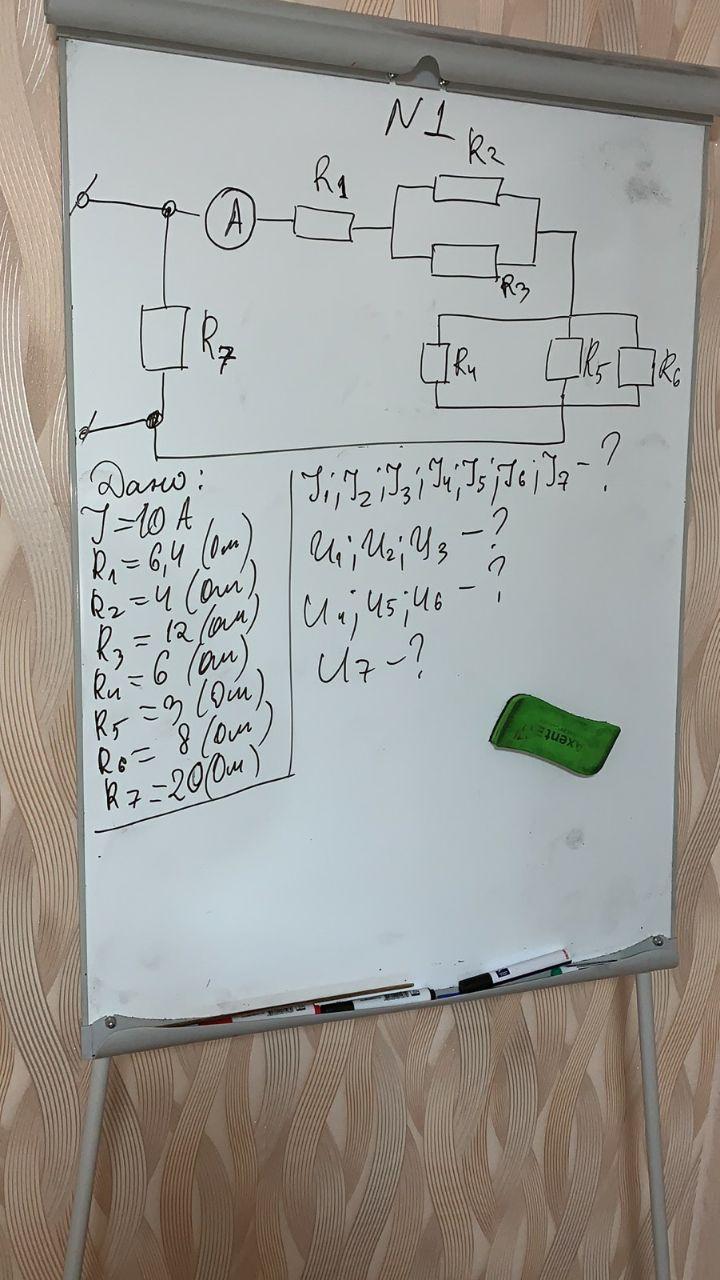 N1
R2
R1
A
R3
R7
R4
R5
R6
Дано:
I=10 А
R1=6,4 (Ом)
R2=4 (Ом)
R3=12 (Ом)
R4=6 (Ом)
R5=3 (Ом)
R6=8 (Ом)
R7=20(Ом)
I1; I2; I3; I4; I5; I6; I7-?
U1; U2; U3 -?
U4; U5; U6 -?
U7-?
Axent